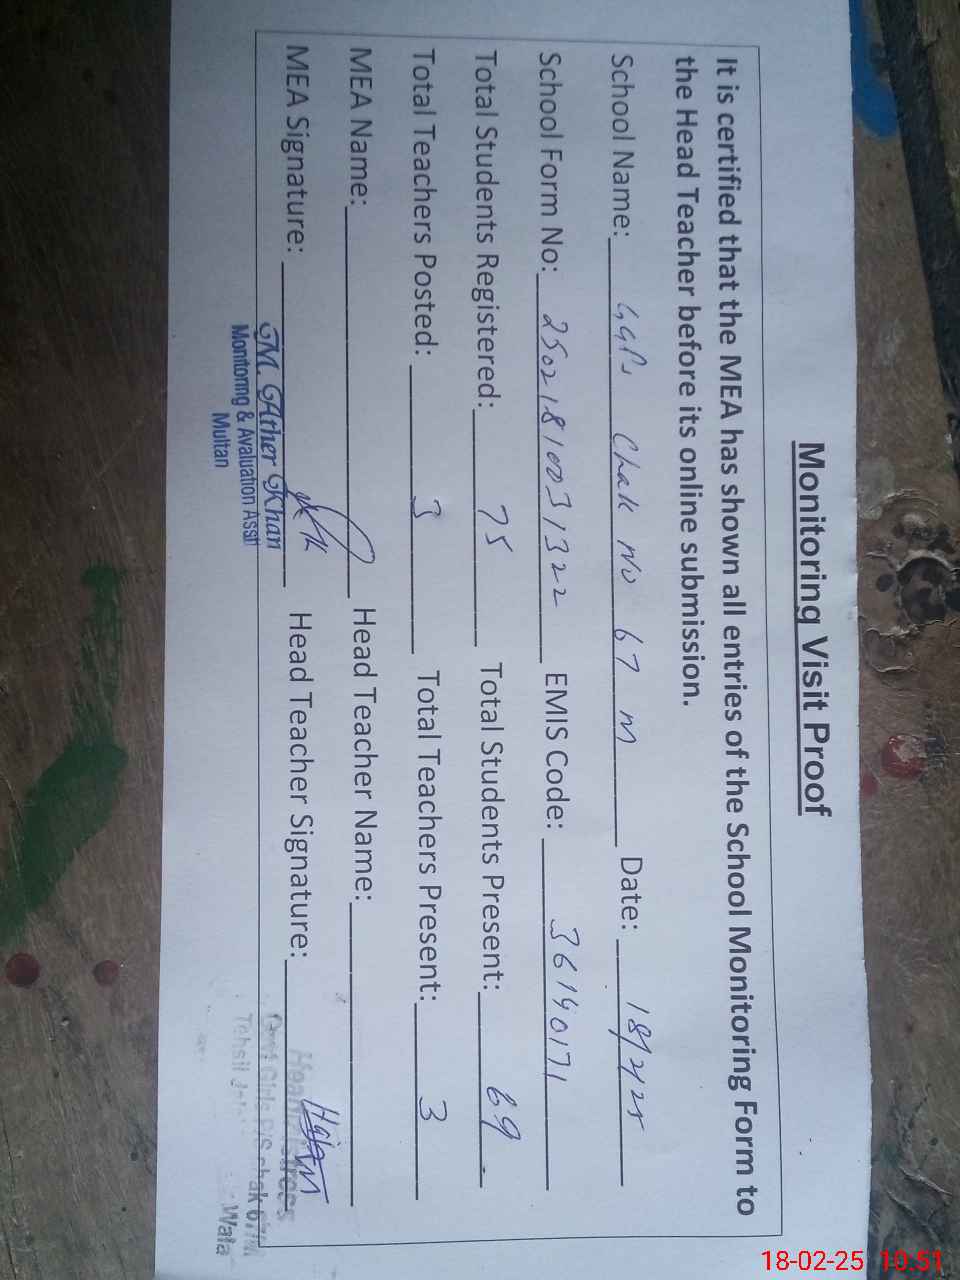 Monitoring Visit Proof
It is certified that the MEA has shown all entries of the School Monitoring Form to
the Head Teacher before its online submission.
School Name: GGPS Chak No 67 M Date: 18/2/25
School Form No: 25021810031322 EMIS Code: 36140171
Total Students Registered: 75 Total Students Present: 69
Total Teachers Posted: 3 Total Teachers Present: 3
MEA Name: Head Teacher Name:
MEA Signature: Head Teacher Signature:
M. Ather Khan
Monitoring & Avaluation Asstt
Multan
Govt Girls P/S chak 67/M
Tehsil Wala
18-02-25 10:51